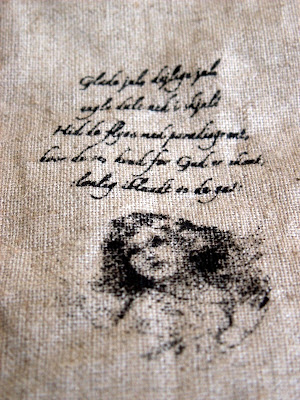 Glade jul, dejlige jul
engle dale ned i skjul!
Hid de flyve med paradisgrønt,
hvor de se, hvad for Gud er skønt,
lønlig iblandt os de gaa!